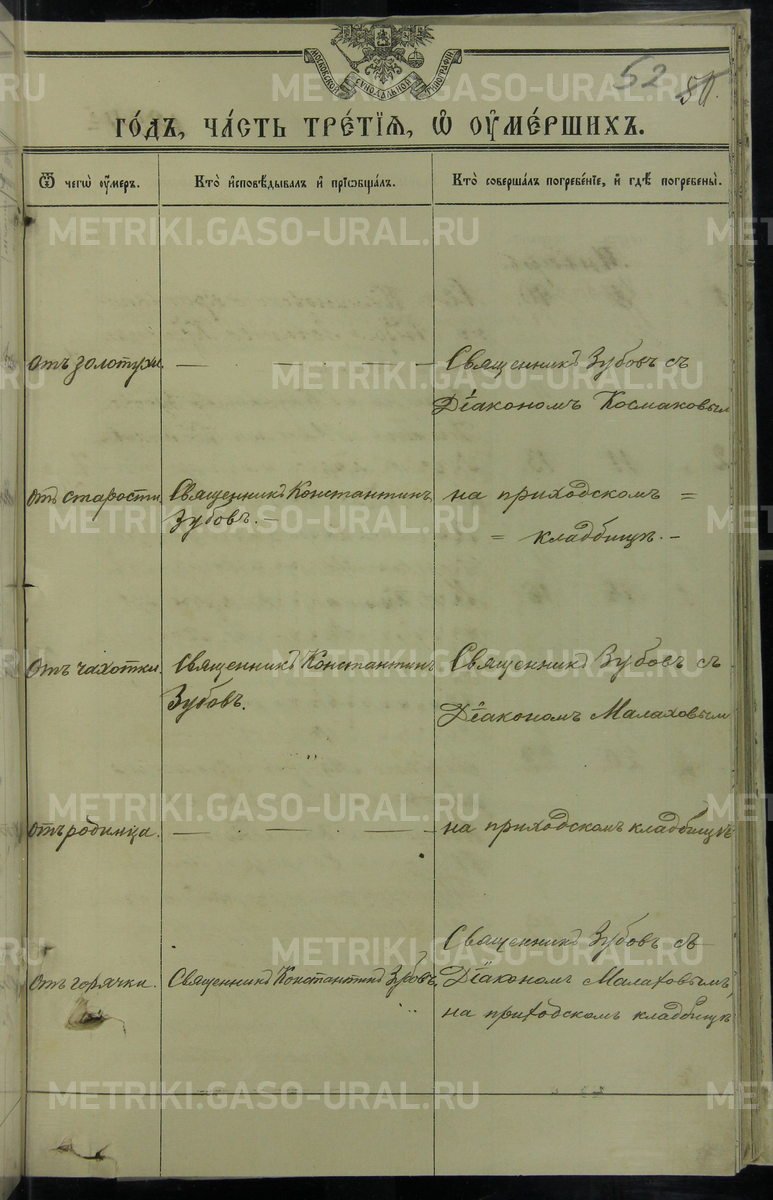 МОСКОВСКОЙ СѴНОДАЛЬНОЙ ТИПОГРАФІИ
52
METRIKI.GASO-URAL.RU
го́дъ, ча́сть тре́тїѧ, ѡ҆ ᲂу҆ме́ршихъ.
Ѿ чегѡ̀ ᲂу҆́меръ.
Кто̀ и҆сповѣ́дывалъ и҆ прїѡбща́лъ.
Кто̀ соверша́лъ погребе́нїе, и҆ гдѣ̀ погребены̀.
отъ золотухи.
Священникъ Зубовъ съ
Діакономъ Космаковым
отъ старости.
Священникъ Константинъ
Зубовъ. –
на приходском =
= кладбищѣ. –
отъ чахотки.
Священникъ Константинъ
Зубовъ.
Священникъ Зубовъ съ
Діакономъ Малаховым
отъ родимца.
на приходскомъ кладбищѣ
отъ горячки.
Священникъ Константинъ Зубовъ.
Священникъ Зубовъ съ
Діакономъ Малаховымъ,
на приходскомъ кладбищѣ